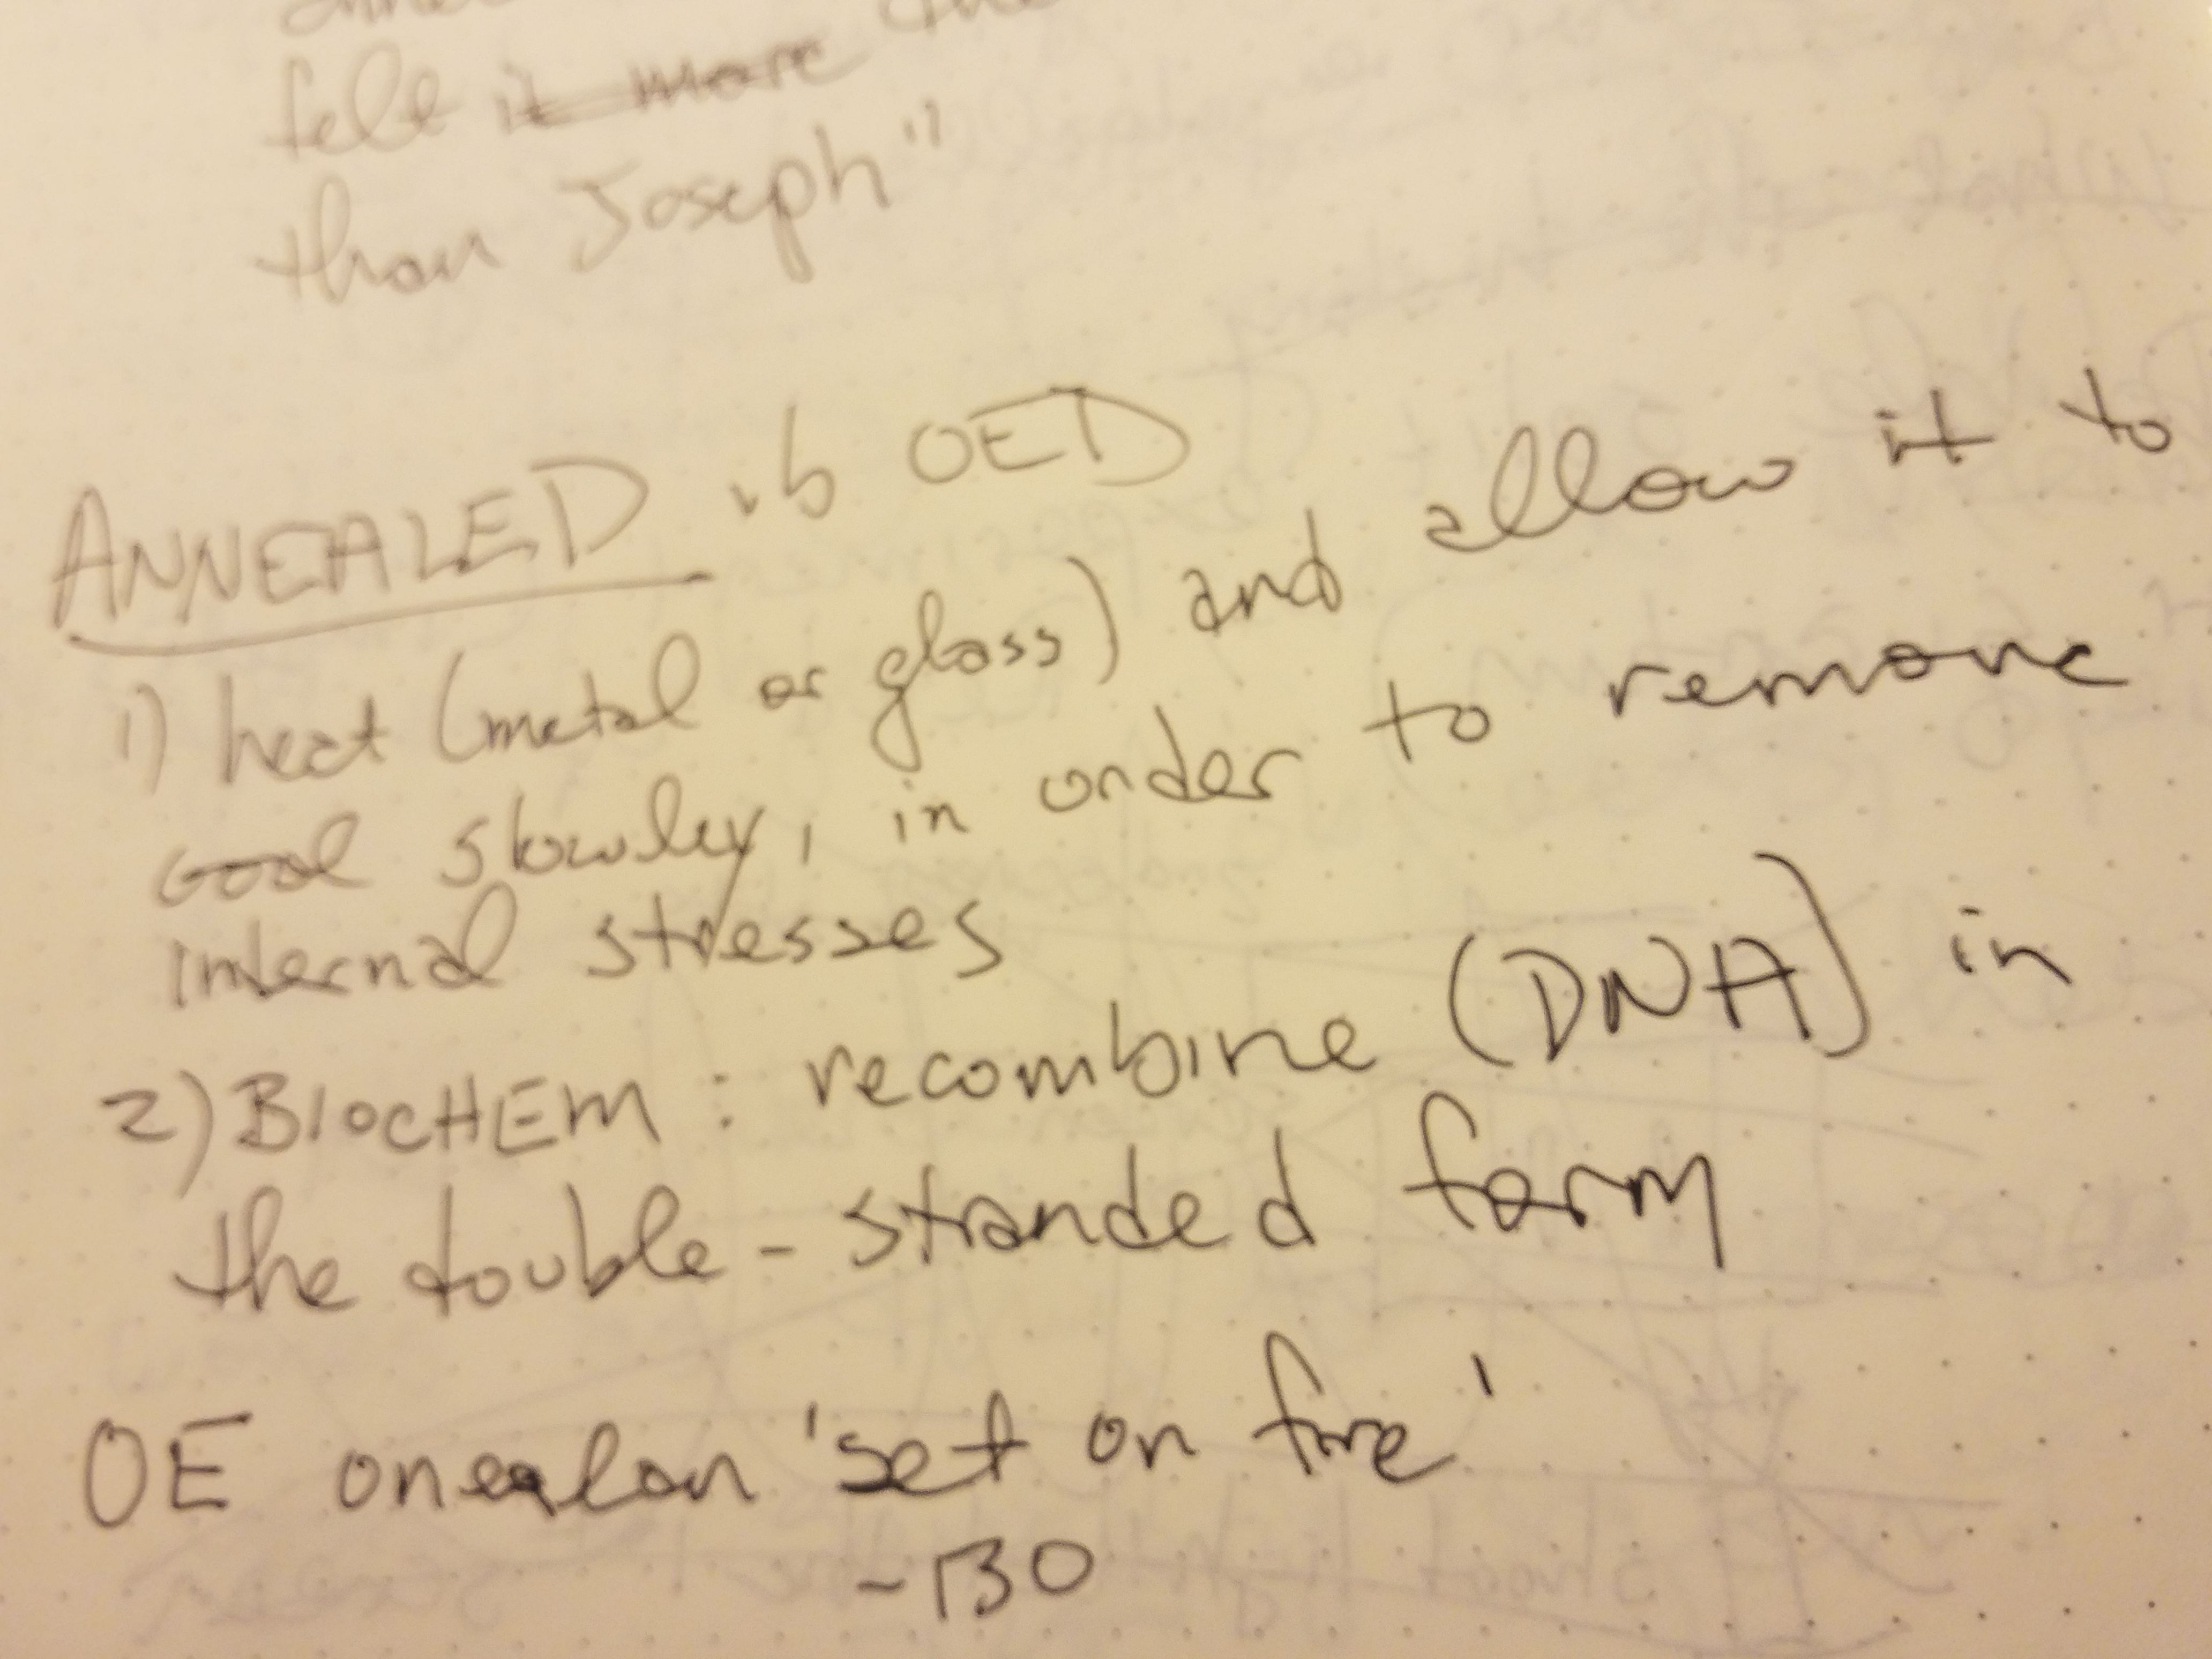 felt it more the
than Joseph"
ANNEALED vb OED
1) heat (metal or glass) and allow it to
cool slowley, in order to remove
internal stresses
2) BIOCHEM : recombine (DNA) in
the double-stranded form
OE onealon 'set on fire'
-BO